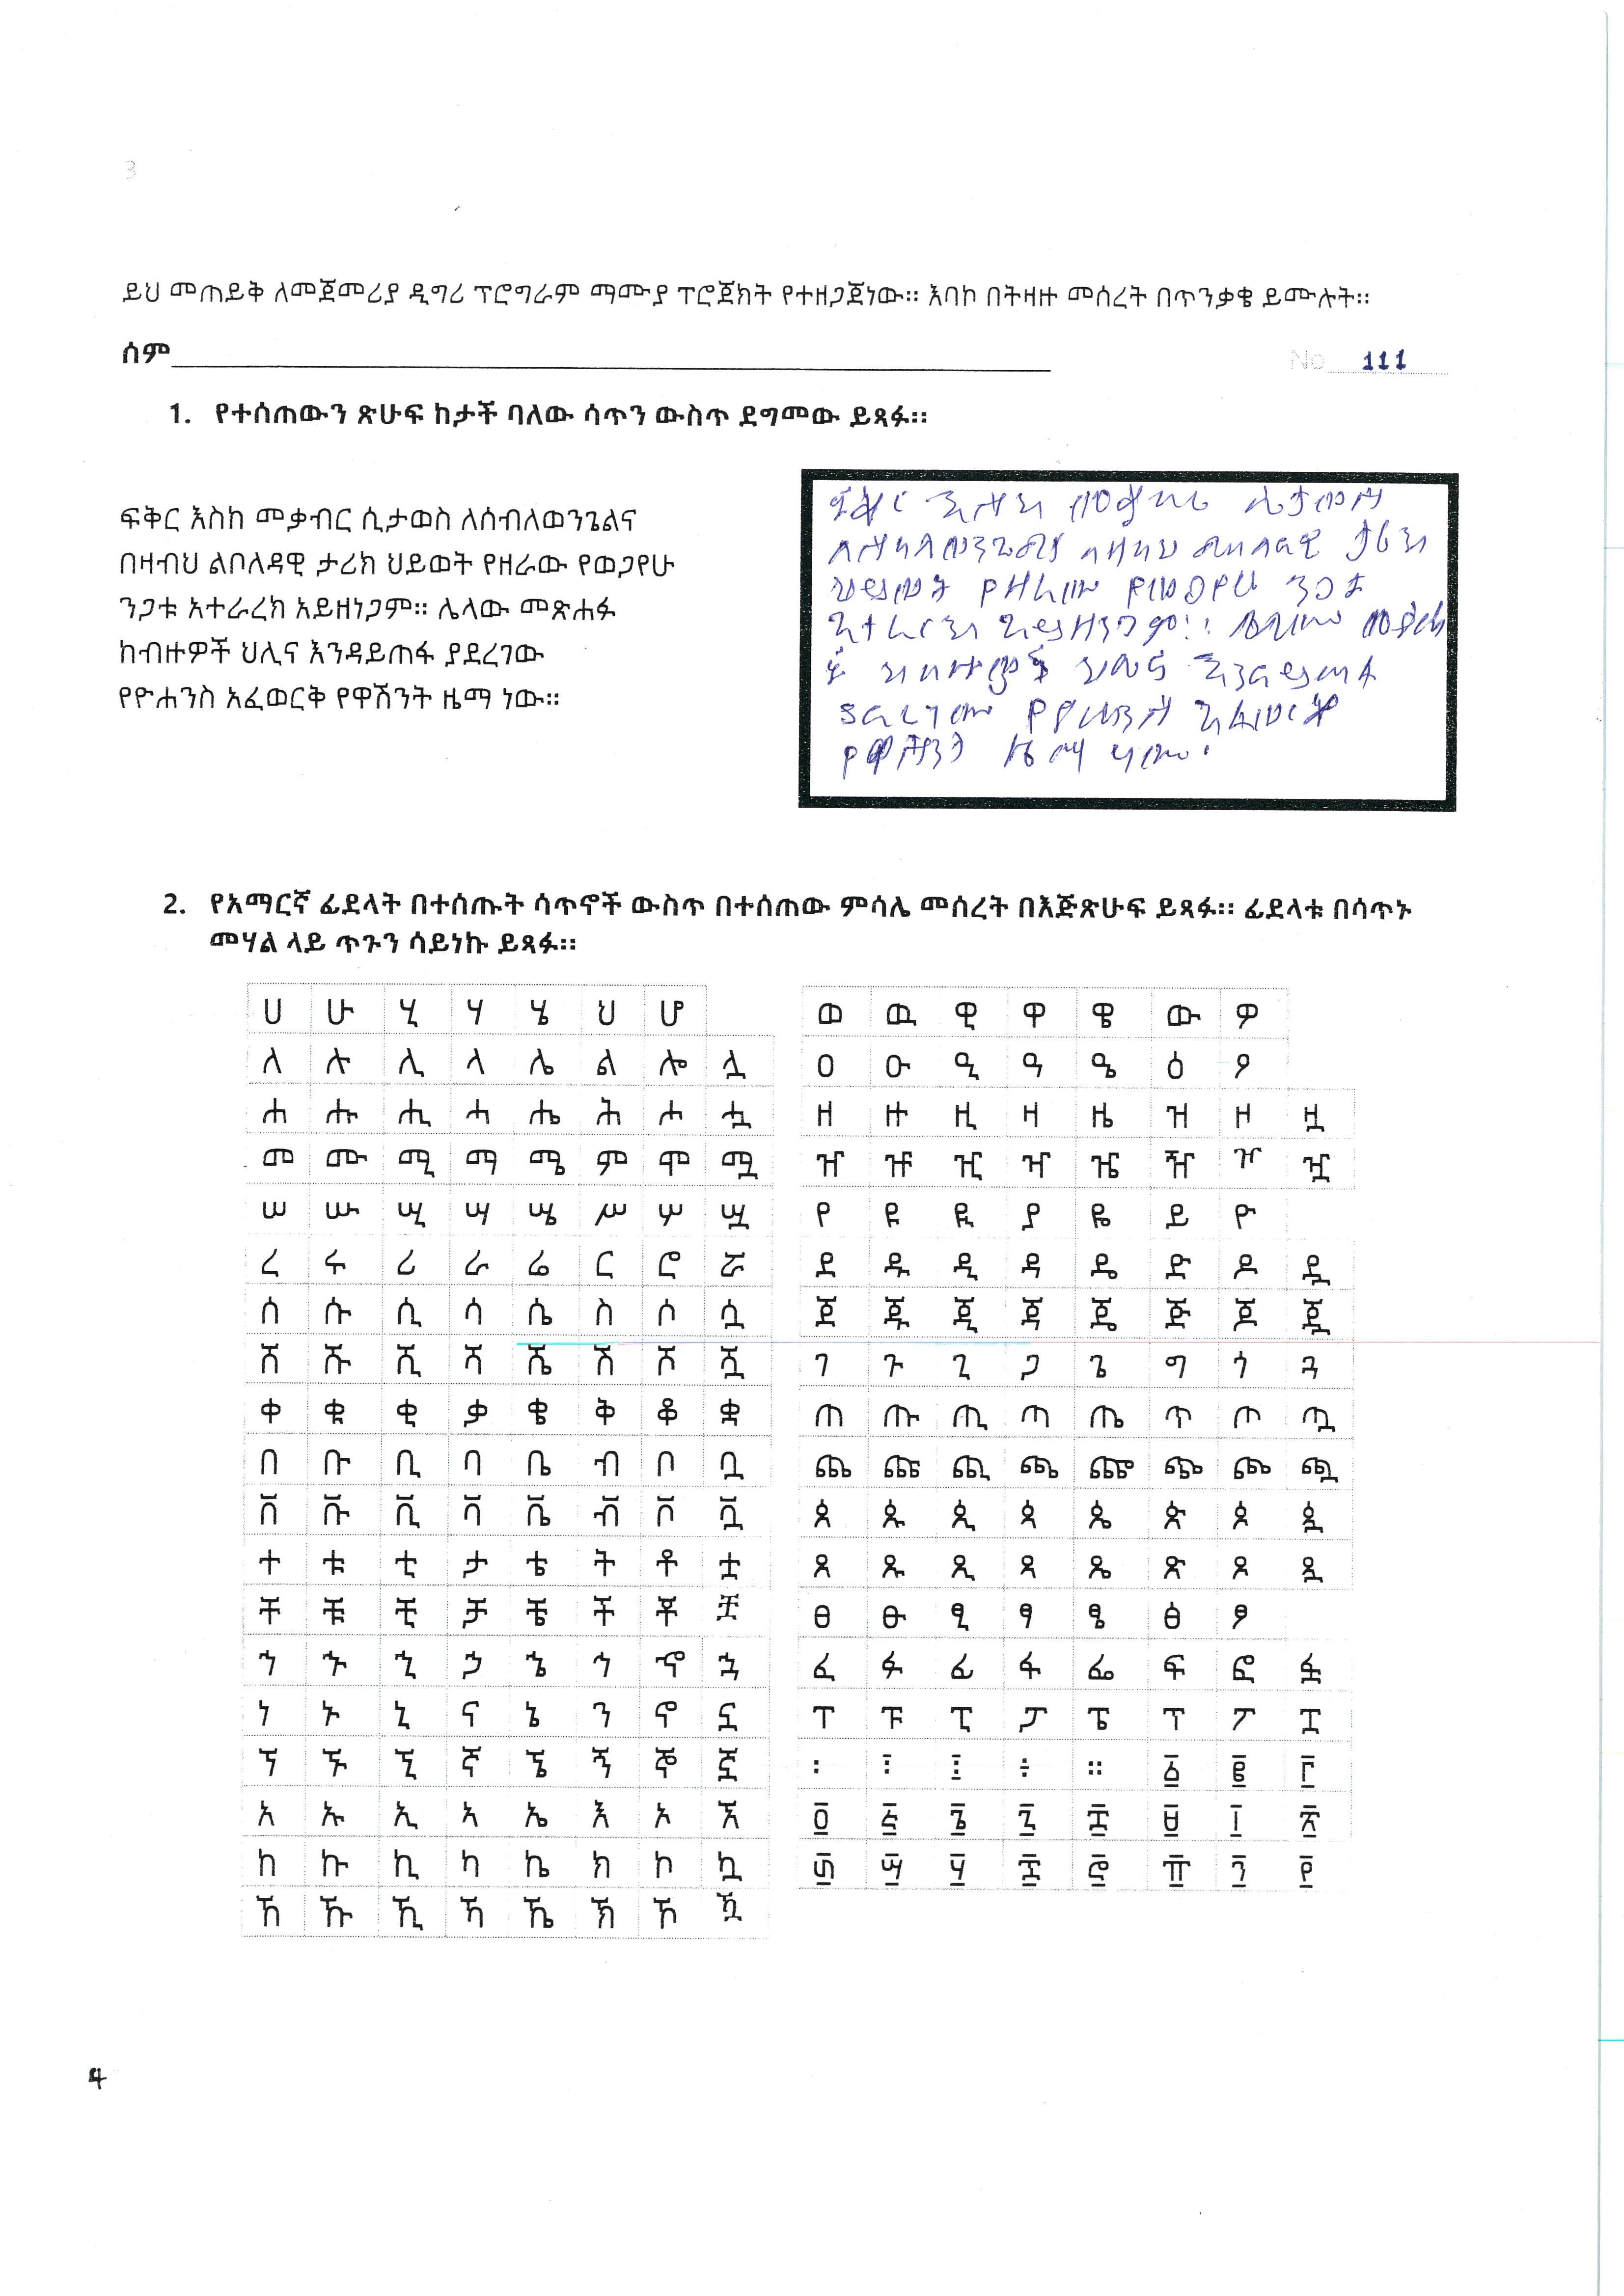 3
ይህ መጠይቅ ለመጀመሪያ ዲግሪ ፕሮግራም ማሙያ ፕሮጀክት የተዘጋጀነው። እባኮ በትዛዙ መሰረት በጥንቃቄ ይሙሉት።
ስም
No 111
1. የተሰጠውን ጽሁፍ ከታች ባለው ሳጥን ውስጥ ደግመው ይጻፉ።
ፍቅር እስከ መቃብር ሲታወስ ለሰብለወንጌልና
በዛብህ ልቦለዳዊ ታሪክ ህይወት የዘራው የወጋየሁ
ንጋቱ አተራረክ አይዘነጋም። ሌላው መጽሐፉ
ከብዙዎች ህሊና እንዳይጠፋ ያደረገው
የዮሐንስ አፈወርቅ የዋሽንት ዜማ ነው።
ፍቅር እስከ መቃብር ሲታወስ
ለሰብለወንጌልና በዛብህ ልቦለዳዊ ታሪክ
ህይወት የዘራው የወጋየሁ ንጋቱ
አተራረክ አይዘነጋም። ሌላው መጽሐ
ፉ ከብዙዎች ህሊና እንዳይጠፋ
ያደረገው የዮሐንስ አፈወርቅ
የዋሽንት ዜማ ነው።
2. የአማርኛ ፊደላት በተሰጡት ሳጥኖች ውስጥ በተሰጠው ምሳሌ መሰረት በእጅጽሁፍ ይጻፉ። ፊደላቱ በሳጥኑ
መሃል ላይ ጥጉን ሳይነኩ ይጻፉ።
ሀ ሁ ሂ ሃ ሄ ህ ሆ
ለ ሉ ሊ ላ ሌ ል ሎ ሏ
ሐ ሑ ሒ ሓ ሔ ሕ ሖ ሗ
መ ሙ ሚ ማ ሜ ም ሞ ሟ
ሠ ሡ ሢ ሣ ሤ ሥ ሦ ሧ
ረ ሩ ሪ ራ ሬ ር ሮ ሯ
ሰ ሱ ሲ ሳ ሴ ስ ሶ ሷ
ሸ ሹ ሺ ሻ ሼ ሽ ሾ ሿ
ቀ ቁ ቂ ቃ ቄ ቅ ቆ ቋ
በ ቡ ቢ ባ ቤ ብ ቦ ቧ
ቨ ቩ ቪ ቫ ቬ ቭ ቮ ቯ
ተ ቱ ቲ ታ ቴ ት ቶ ቷ
ቸ ቹ ቺ ቻ ቼ ች ቾ ቿ
ኀ ኁ ኂ ኃ ኄ ኅ ኆ ኋ
ነ ኑ ኒ ና ኔ ን ኖ ኗ
ኘ ኙ ኚ ኛ ኜ ኝ ኞ ኟ
አ ኡ ኢ ኣ ኤ እ ኦ ኧ
ከ ኩ ኪ ካ ኬ ክ ኮ ኳ
ኸ ኹ ኺ ኻ ኼ ኽ ኾ ዃ
ወ ዉ ዊ ዋ ዌ ው ዎ
ዐ ዑ ዒ ዓ ዔ ዕ ዖ
ዘ ዙ ዚ ዛ ዜ ዝ ዞ ዟ
ዠ ዡ ዢ ዣ ዤ ዥ ዦ ዧ
የ ዩ ዪ ያ ዬ ይ ዮ
ደ ዱ ዲ ዳ ዴ ድ ዶ ዷ
ጀ ጁ ጂ ጃ ጄ ጅ ጆ ጇ
ገ ጉ ጊ ጋ ጌ ግ ጎ ጓ
ጠ ጡ ጢ ጣ ጤ ጥ ጦ ጧ
ጨ ጩ ጪ ጫ ጬ ጭ ጮ ጯ
ጰ ጱ ጲ ጳ ጴ ጵ ጶ ጷ
ጸ ጹ ጺ ጻ ጼ ጽ ጾ ጿ
ፀ ፁ ፂ ፃ ፄ ፅ ፆ
ፈ ፉ ፊ ፋ ፌ ፍ ፎ ፏ
ፐ ፑ ፒ ፓ ፔ ፕ ፖ ፗ
፡ ፧ ፤ ፥ ። ፩ ፪ ፫
፬ ፭ ፮ ፯ ፰ ፱ ፲ ፳
፴ ፵ ፶ ፷ ፸ ፹ ፺ ፻
4